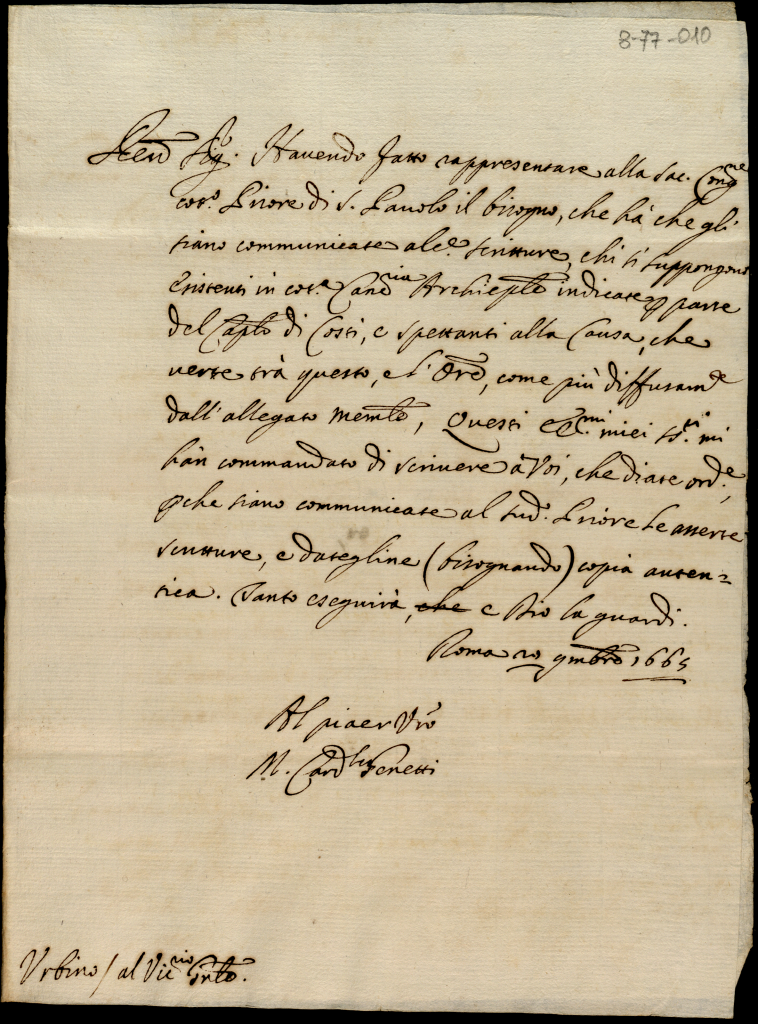 8-77-010
Rev.do Sig.r Havendo fatto rappresentare alla Sac. Cong.ne
cot.o Priore di S. Pavolo il bisogno, che hà che gli
siano communicate alc.e scritture, chi si suppongono
esistenti in cot.a Canc.ria Archiep.le indicate p parte
del Cap.lo di Costì, e spettanti alla Causa, che
verte trà questo, e l' Ore, come più diffusam.te
dall' allegato Mem.le, Questi Em.mi miei SS.ri mi
hàn commandato di scrivere à Voi, che diate ord.e,
p che siano communicate al sud.o Priore le asserte
scritture, e dategline (bisognando) copia auten=
tica. Tanto eseguirà, che e Dio la guardi.
Roma 20 9mbre 1665
Al piacer V.ro
M. Card.le Ginetti
Urbino / al Vic.rio Gn.le.